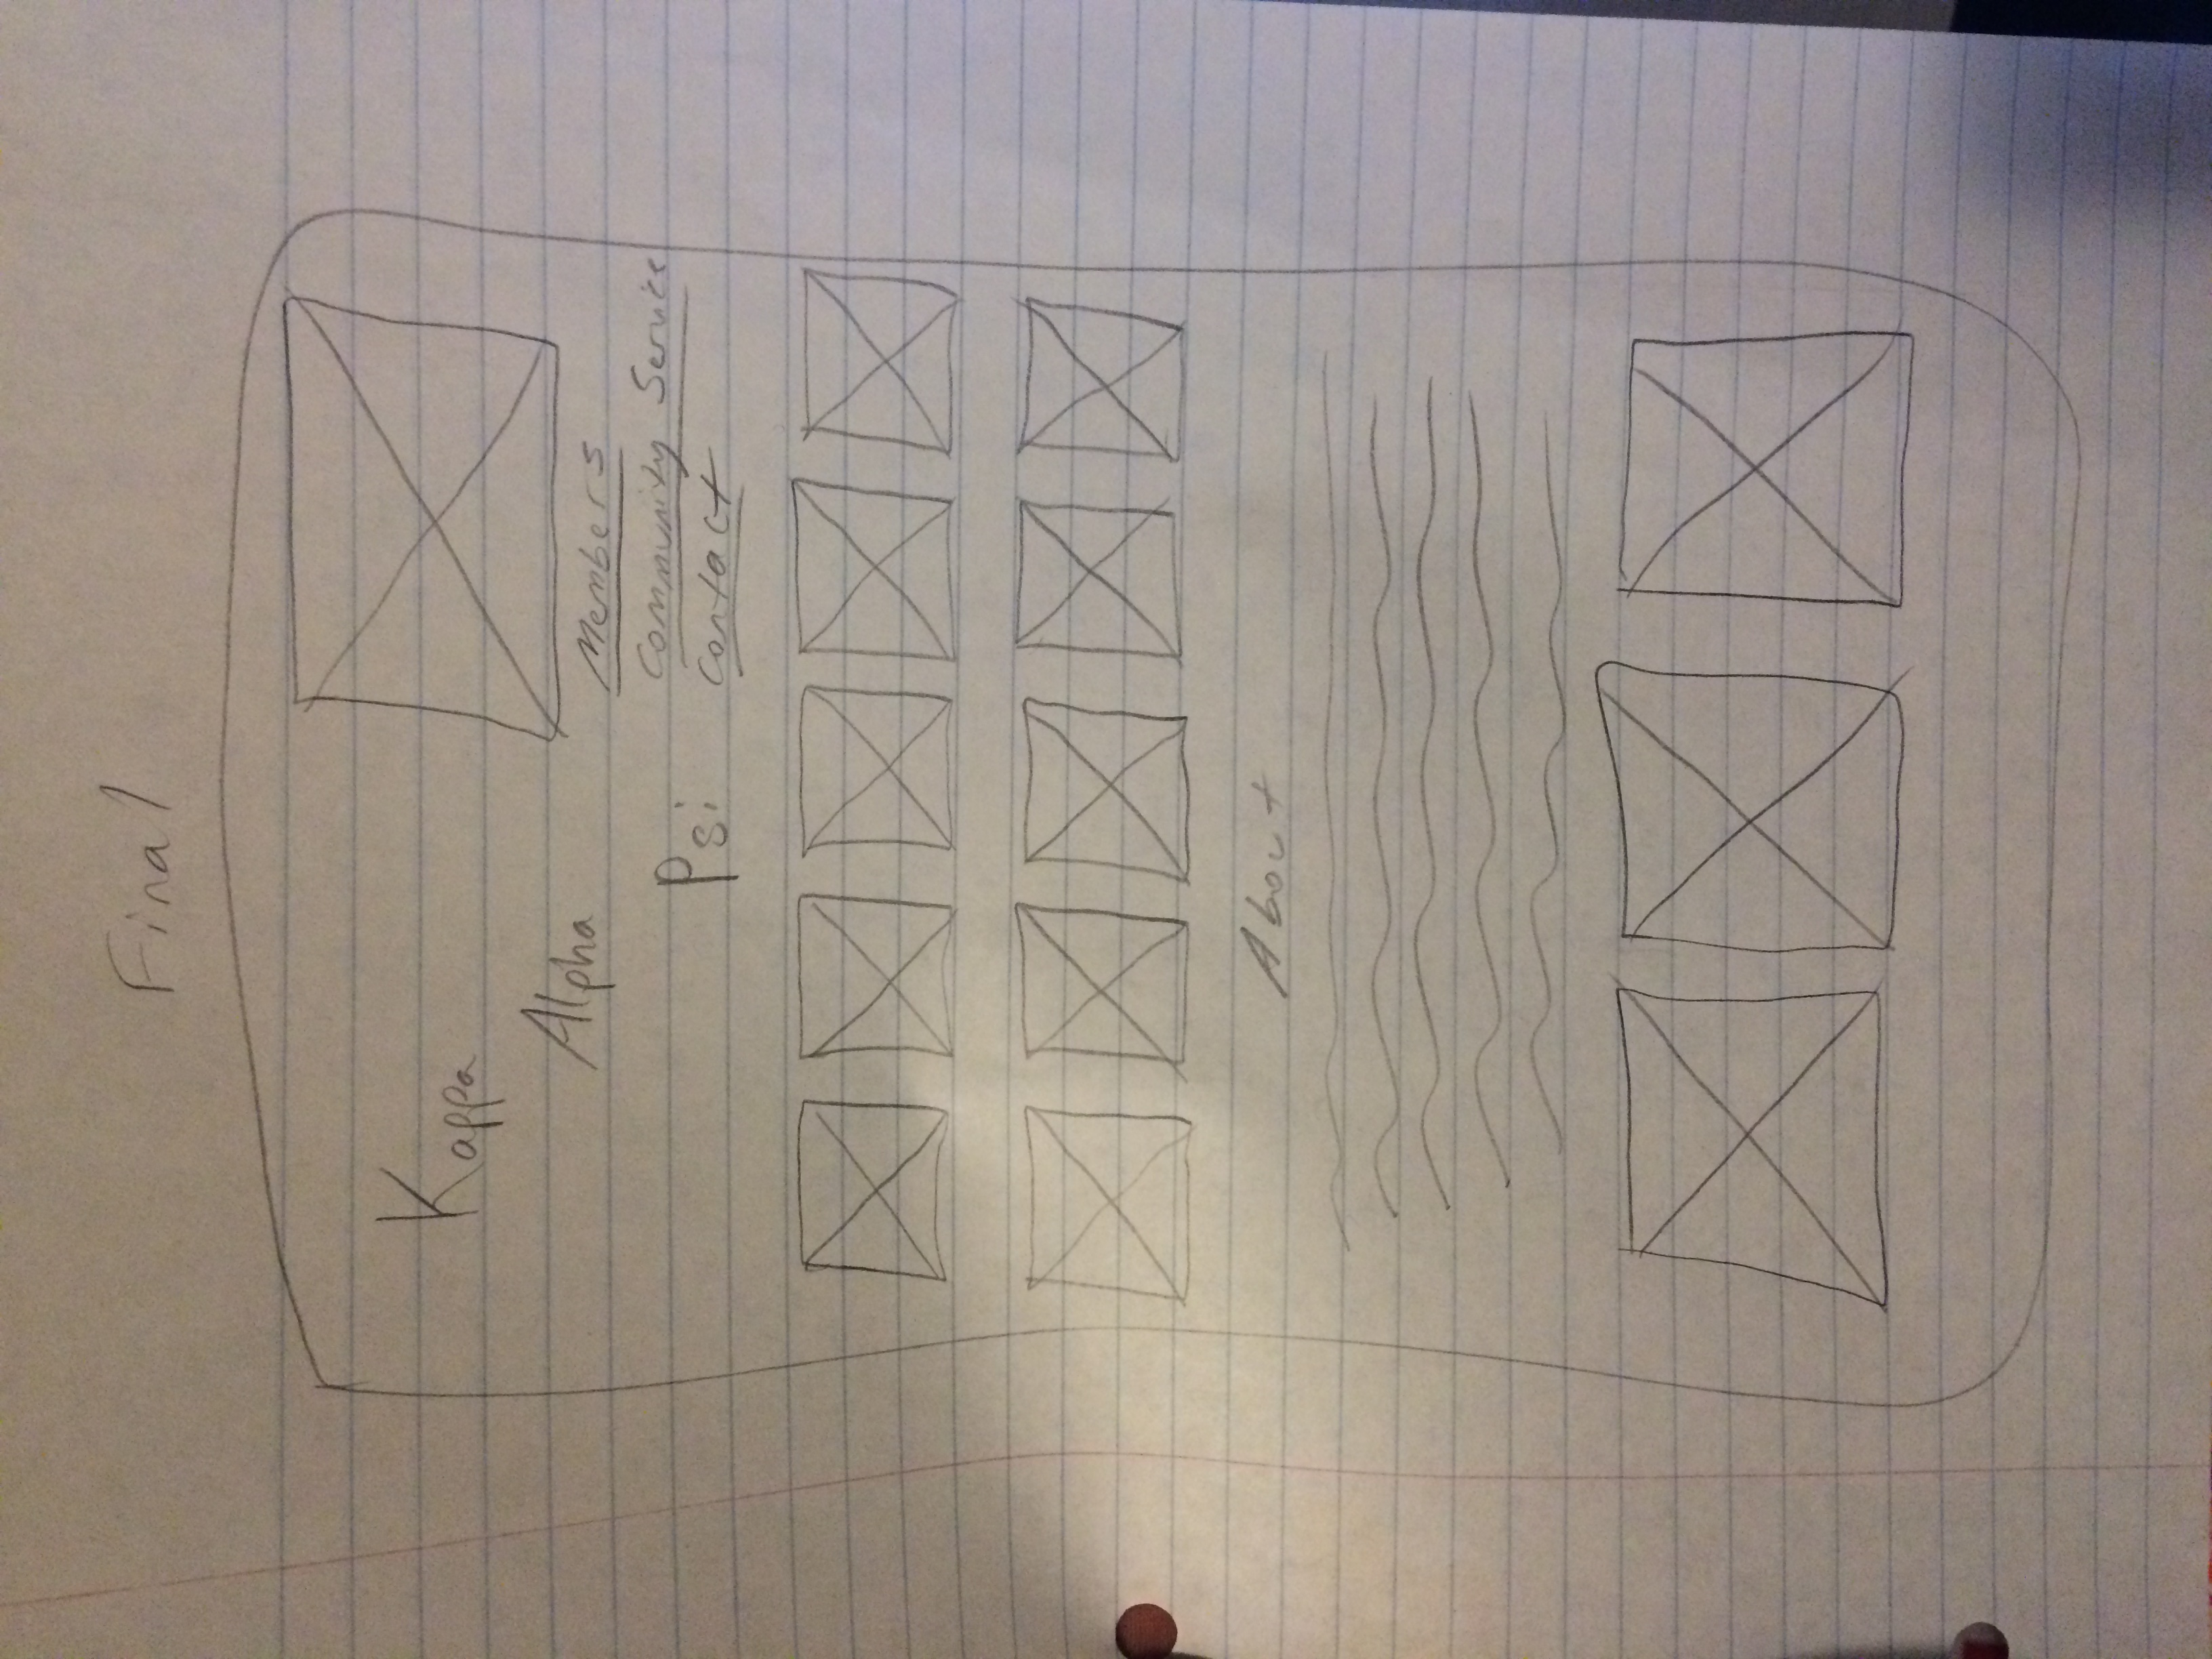 Final
Kappa
Alpha
Psi
Members
Community Service
Contact
About